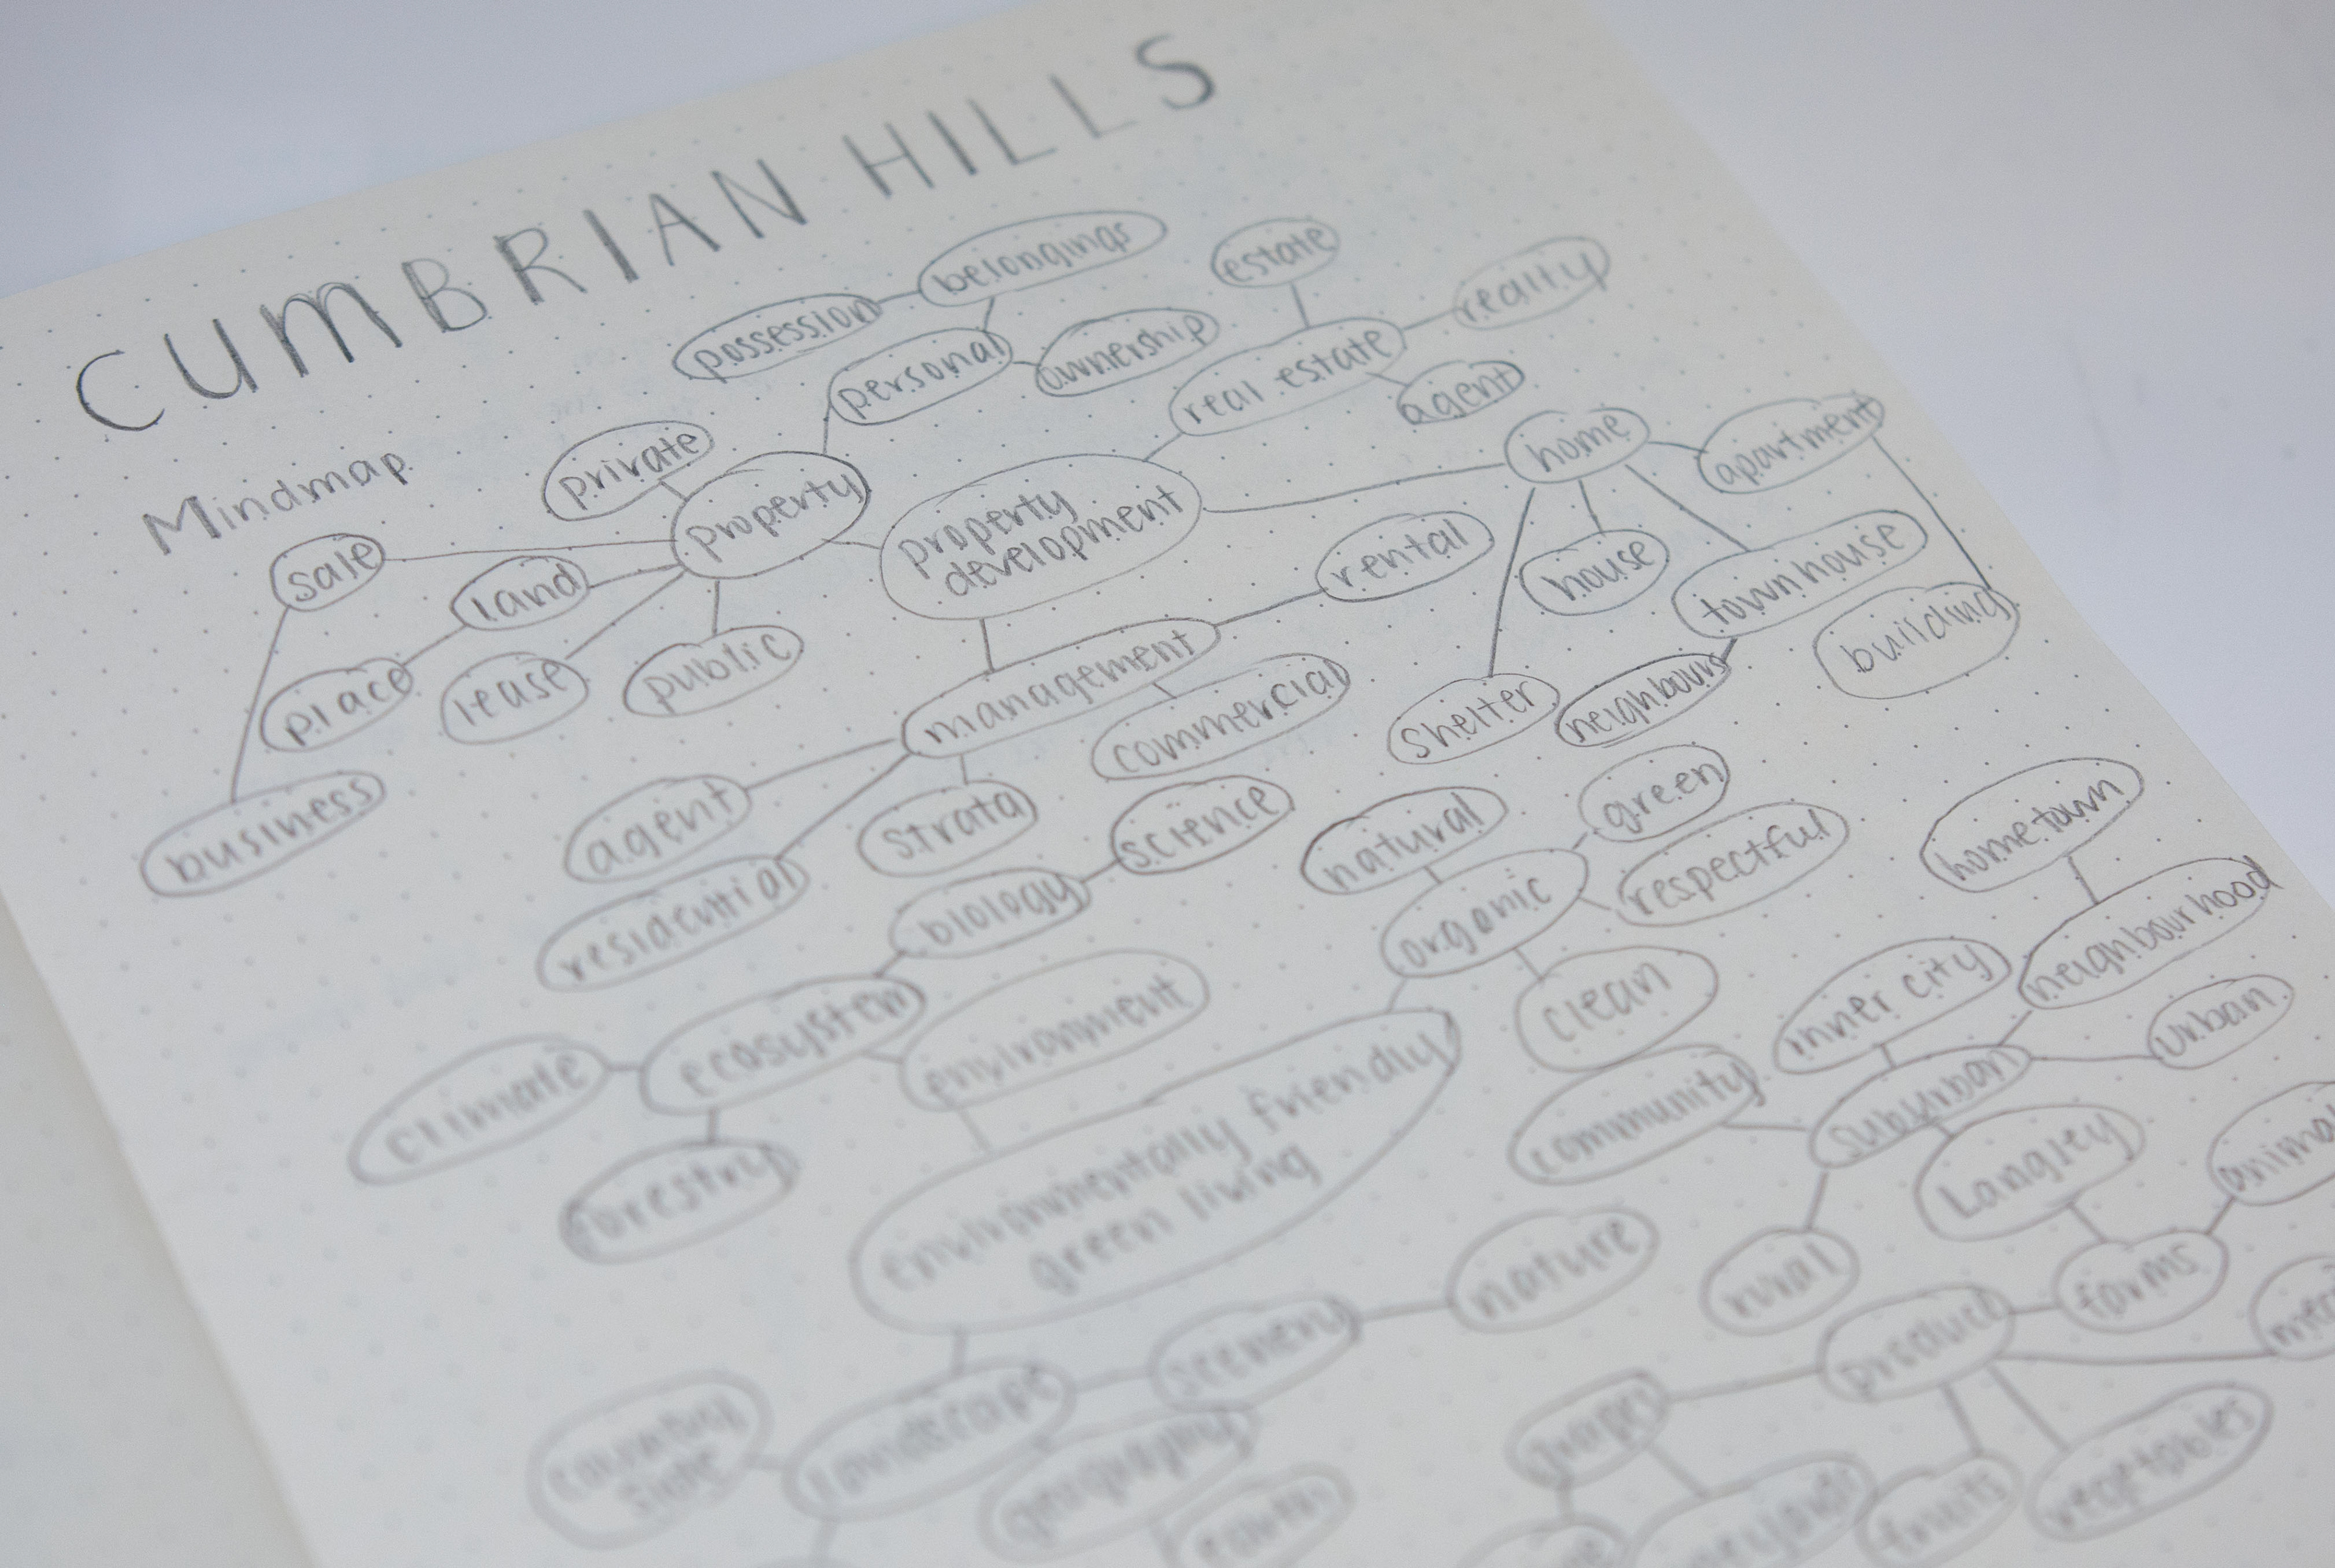 CUMBRIAN HILLS
Mindmap
belongings
possession
personal
ownership
estate
realty
real estate
agent
private
property
property
development
home
apartment
sale
land
place
lease
public
business
rental
house
townhouse
building
management
commercial
shelter
neighbours
agent
strata
residential
science
biology
natural
green
organic
respectful
clean
hometown
neighbourhood
inner city
urban
suburban
community
Langley
rural
climate
ecosystem
environment
forestry
environmentally friendly
green living
animal
farms
nature
scenery
landscape
country
side
geography
earth
produce
grapes
vineyards
fruits
vegetables